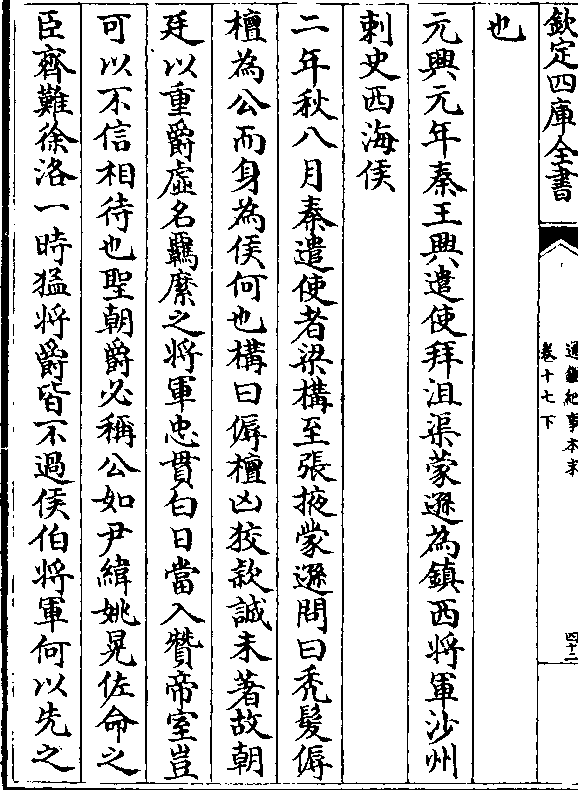 欽定四庫全書
通鑑紀事本末
卷十七下
四十二
也
元興元年秦王興遣使拜沮渠蒙遜為鎮西將軍沙州
刺史西海侯
二年秋八月秦遣使者梁構至張掖蒙遜問曰秃髮傉
檀為公而身為侯何也構曰傉檀凶狡款誠未著故朝
廷以重爵虛名羈縻之將軍忠貫白日當入贊帝室豈
可以不信相待也聖朝爵必稱公如尹緯姚晃佐命之
臣齊難徐洛一時猛將爵皆不過侯伯將軍何以先之